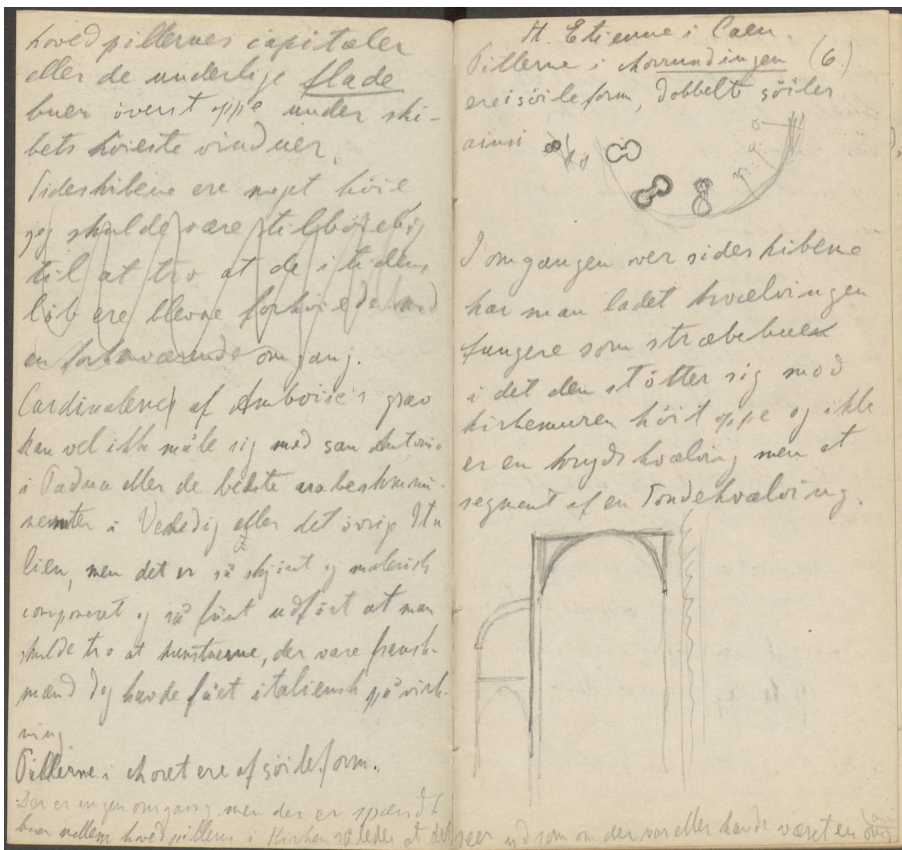 hovedpillernes capitæler
eller de underlige flade
buer överst oppe under ski-
bets höieste vinduer.
Sideskibene ere meget höie
jeg skulde være tilböielig
til at tro at de i tidens
löb ere blevne forhöiede med
en omgang.
Cardinalerne af Amboise's grav
kan vel ikke måle sig med san Antonio
i Padua eller de bedste
i Venedig eller det övrige Ita
lien, men det er så skjönt og malerisk
componeret og så fint udfört at man
skulde tro at kunstnerne, der vare fransk-
mænd dog havde fået italiensk påvirk-
ning
Pillerne i choret ere af söileform.
Der er ingen omgang men der er spændt
buer mellem hovedpillerne i Kirken således at det seer ud som om der var eller havde været en
St. Etienne i Caen.
Pillerne i chorrundingen (6.)
ere i söileform, dobbelte söiler
ainsi
I omgangen over sideskibene
har man ladet hvælvingen
fungere som stræbebuer
i det den stötter sig mod
kirkemuren höit oppe og ikke
er en krydshvælving men et
segment af en Töndehvælving.